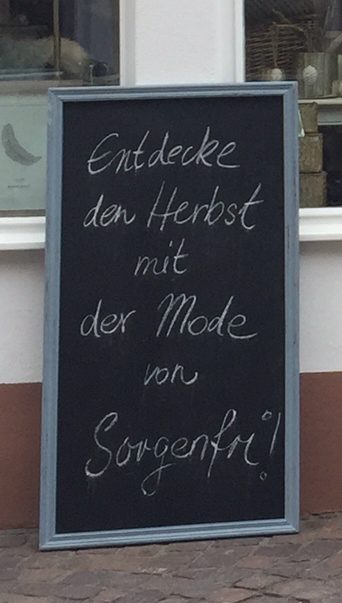 Entdecke
den Herbst
mit
der Mode
von
Sorgenfri!